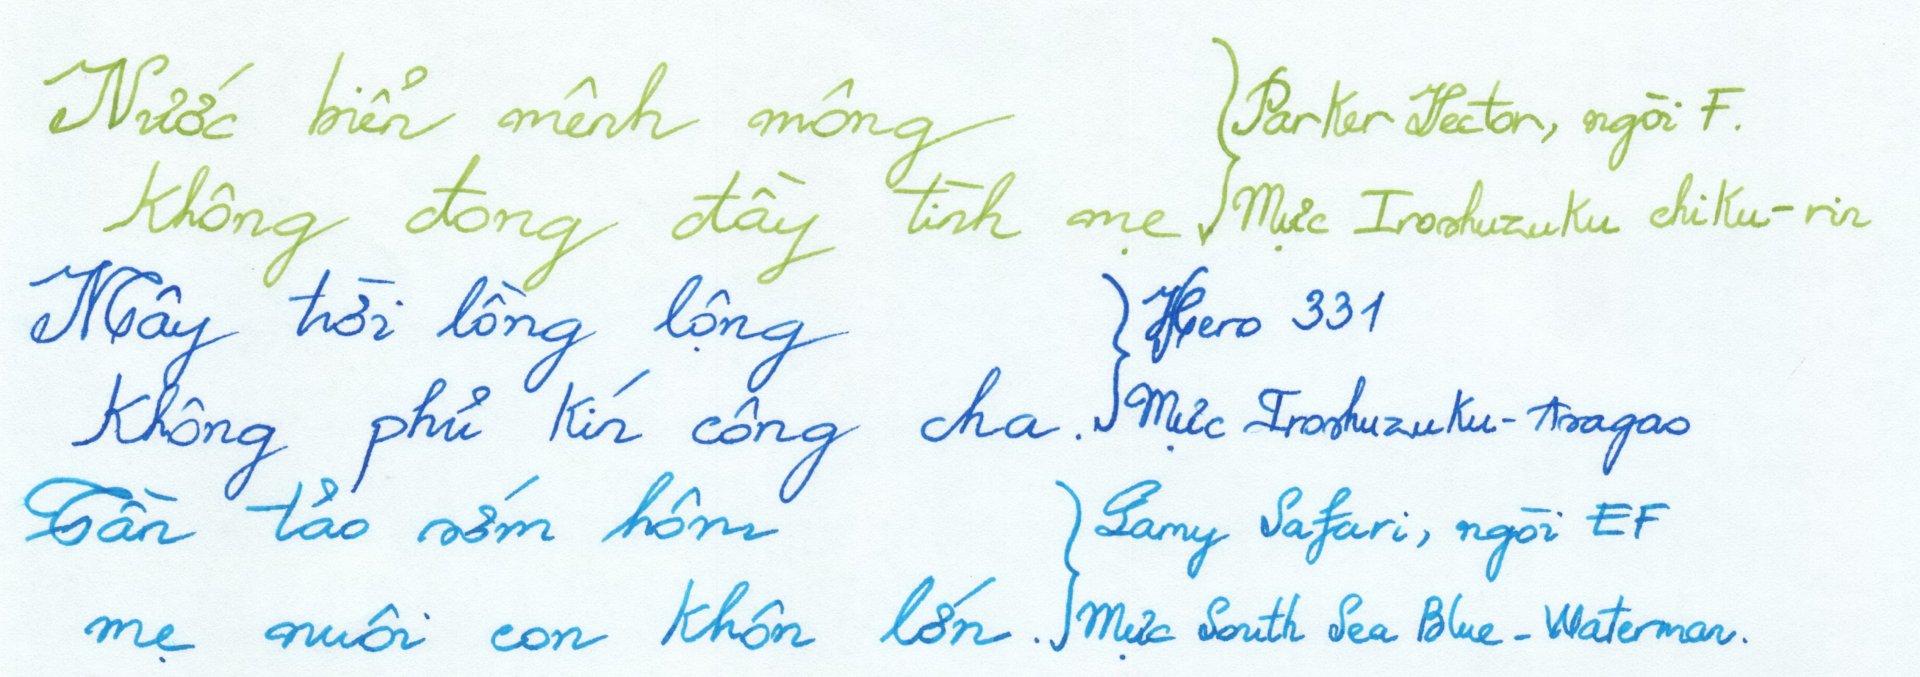 Nước biển mênh mông
Không đong đầy tình mẹ
Parker Vector, ngòi F.
Mực Iroshuzuku chiku-rin
Mây trời lồng lộng
Không phủ kín công cha.
Hero 331
Mực Iroshuzuku-Asagao
Tần tảo sớm hôm
mẹ nuôi con khôn lớn.
Lamy Safari, ngòi EF
Mực South Sea Blue-Waterman.